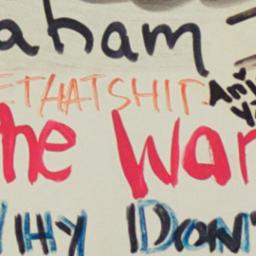 aham
ETHATSHIT
Ani
he War
HY DON'